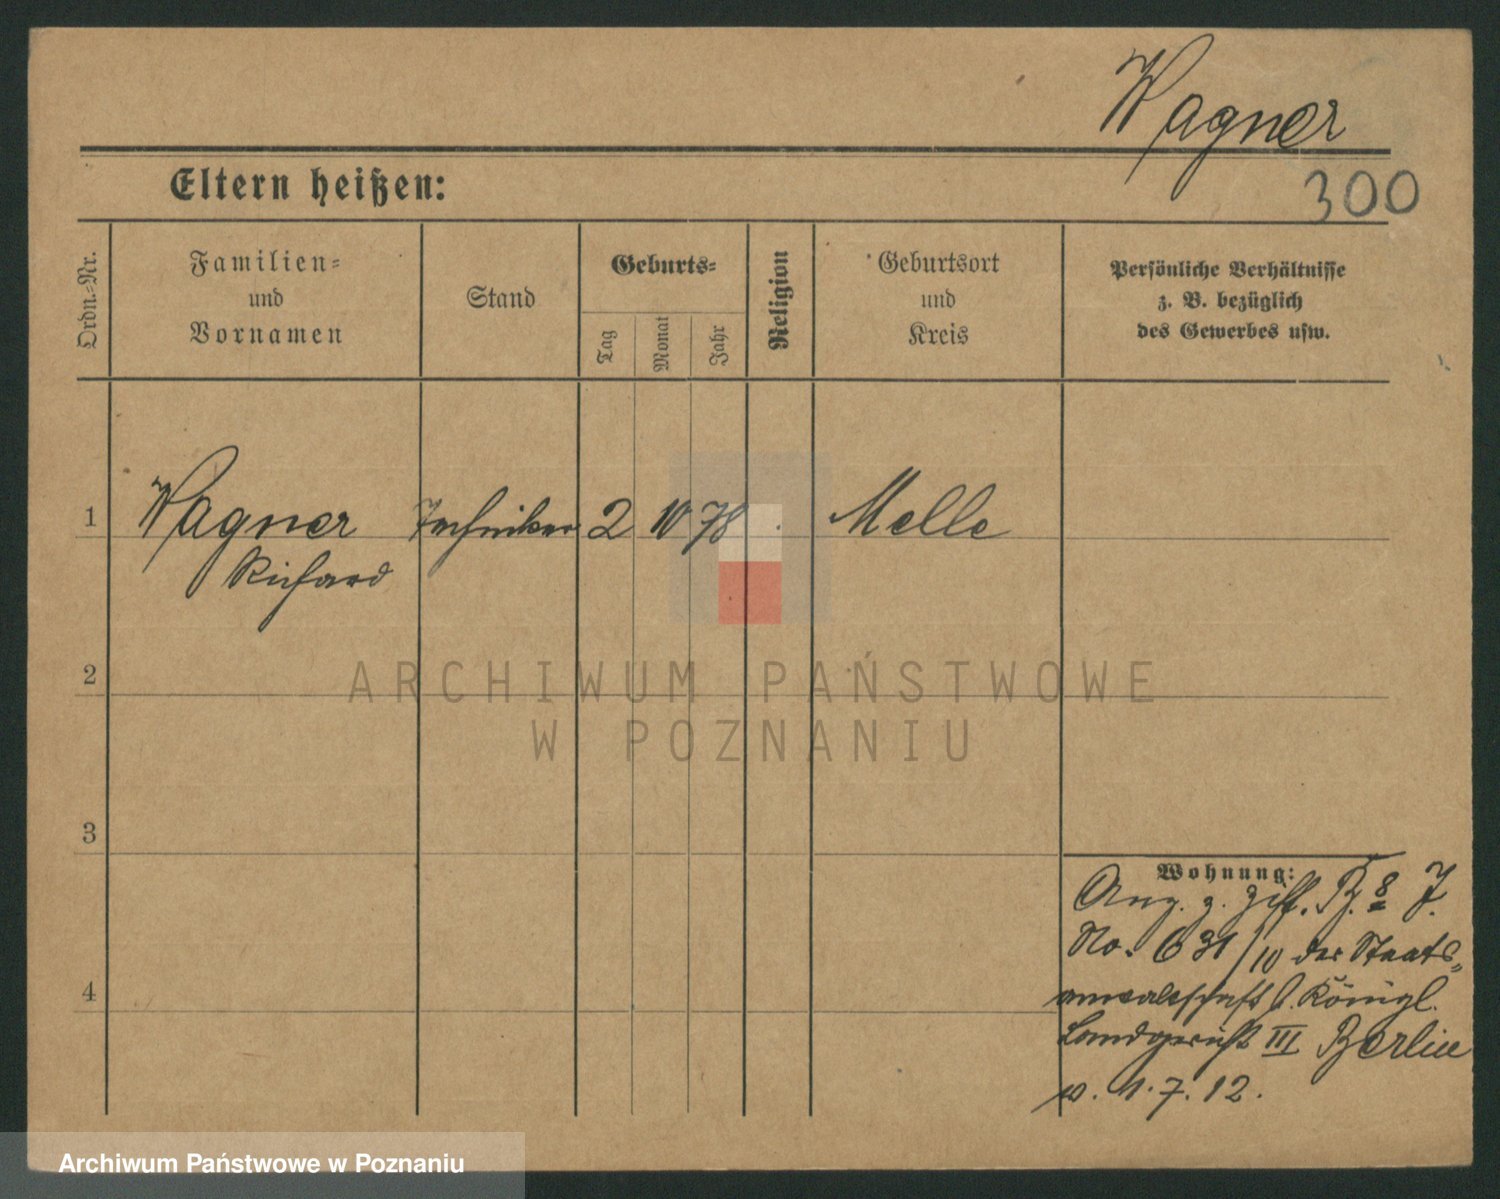 Wagner
300
Eltern heißen:
Ordn.-Nr.
Familien-
und
Vornamen
Stand
Geburts-
Tag
Monat
Jahr
Religion
Geburtsort
und
Kreis
Persönliche Verhältnisse
z. B. bezüglich
des Gewerbes usw.
1
Wagner
Richard
Techniker
2
10
78
Melle
2
ARCHIWUM PAŃSTWOWE
W POZNANIU
3
4
Wohnung:
Ang. z. Ziff. B. 8 J.
No. 631/10 der Staats-
anwaltschaft b. Königl.
Landgericht III Berlin
v. 1.7.12.
Archiwum Państwowe w Poznaniu